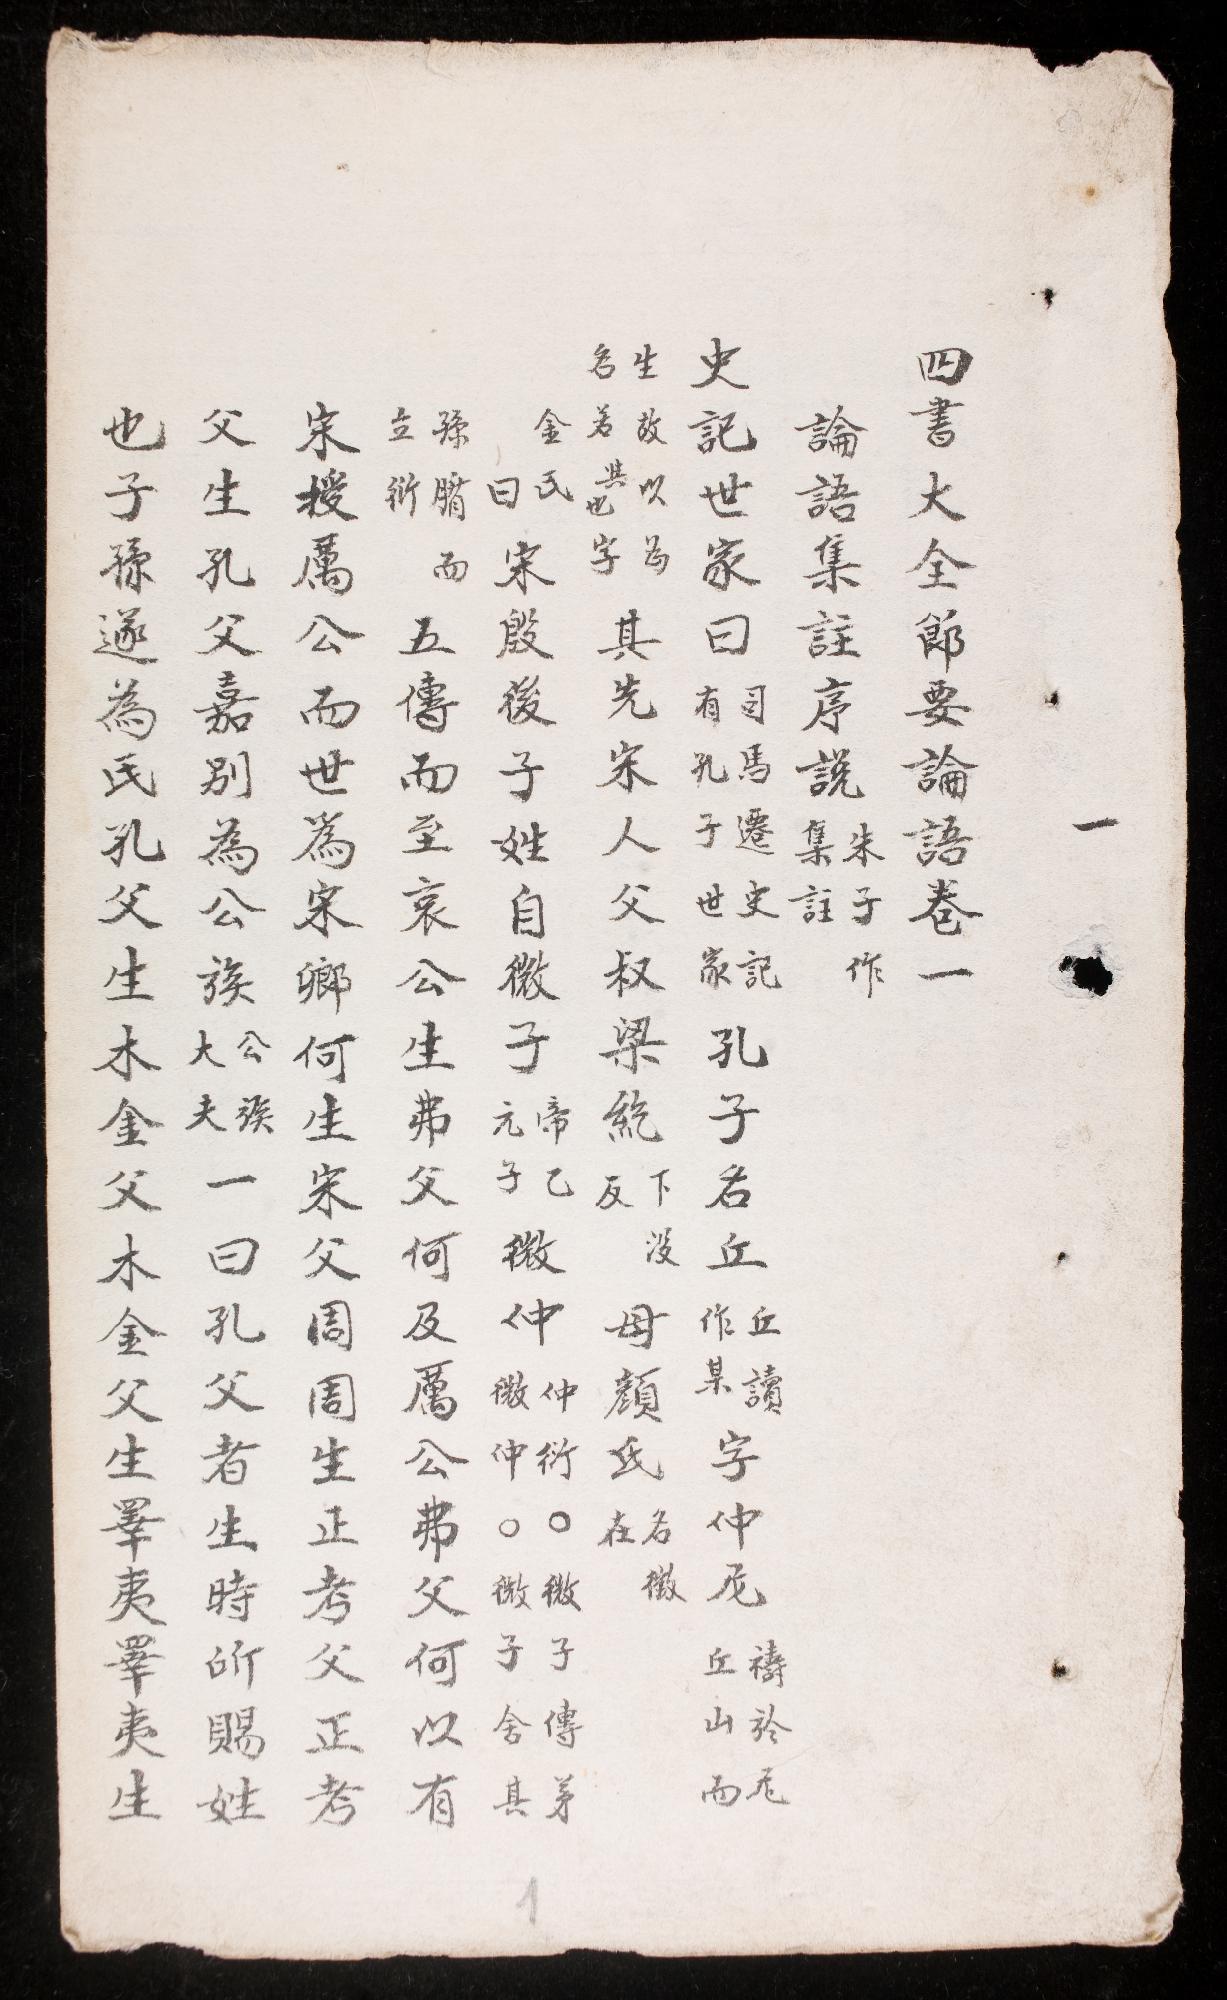 一
四書大全節要論語卷一
論語集註序說朱子作集註
史記世家曰司馬遷史記有孔子世家孔子名丘丘讀作某字仲尼禱於尼丘山而
生故以為名若其也字其先宋人父叔梁紇下沒反母顏氏名徵在
金氏曰宋殷後子姓自微子帝乙元子微仲仲衍○微子傳弟微仲○微子舍其
孫腯而立衍五傳而至哀公生弗父何及厲公弗父何以有
宋授厲公而世為宋卿何生宋父周周生正考父正考
父生孔父嘉別為公族公族大夫一曰孔父者生時所賜姓
也子孫遂為氏孔父生木金父木金父生睪夷睪夷生
1